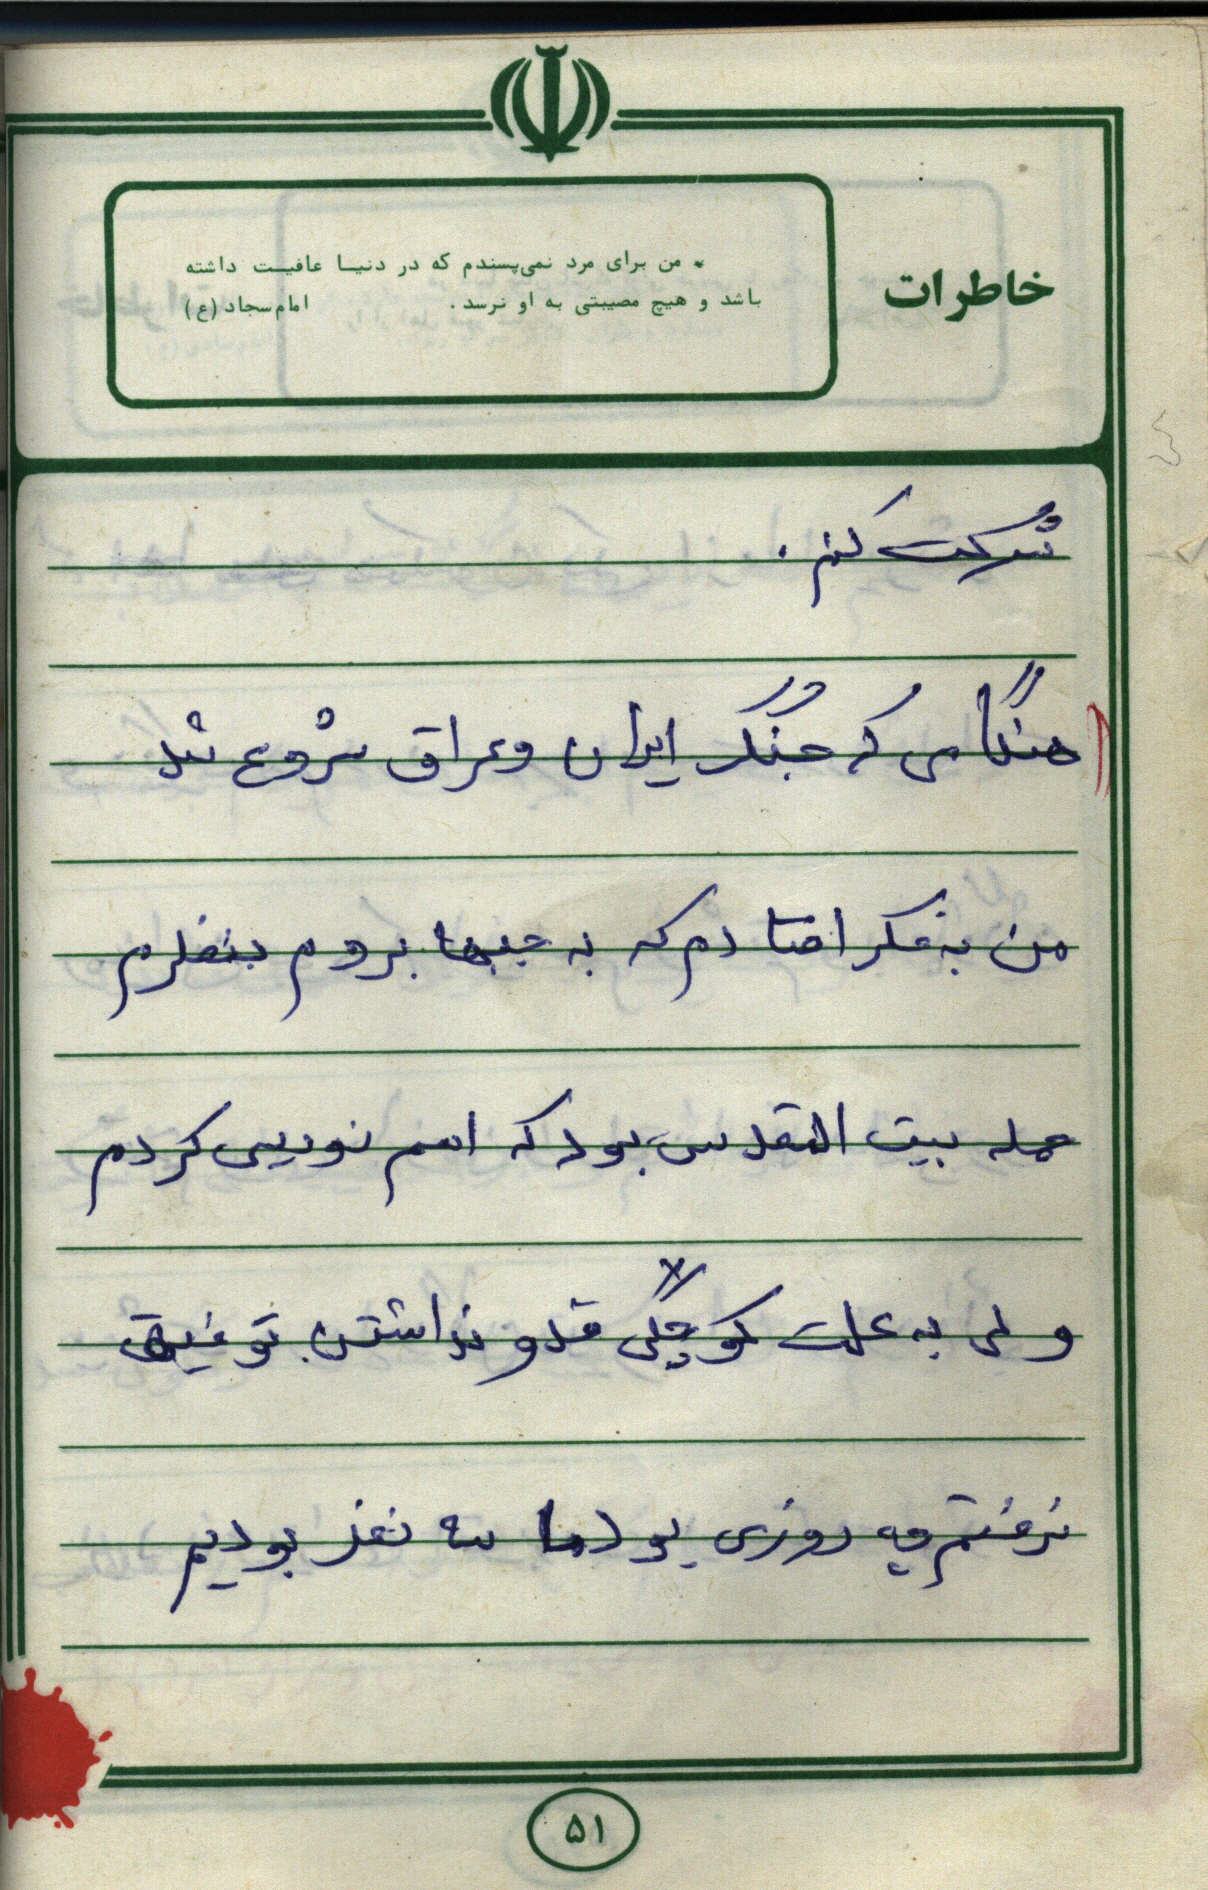 خاطرات
* من برای مرد نمی‌پسندم که در دنیا عافیت داشته
باشد و هیچ مصیبتی به او نرسد. امام سجاد (ع)
شرکت کنم.
هنگامی که جنگ ایران و عراق شروع شد
من به فکر افتادم که به جبهها بروم بنظرم
حمله بیت المقدس بود که اسم نویسی کردم
ولی به علت کوچکی قد و نداشتن توفیق
نرفتم یه روزی بود ما سه نفر بودیم
۵۱